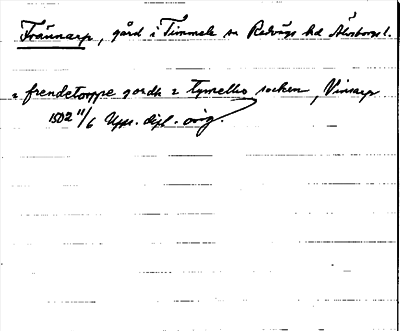 Frännarp, gård i Timmele sn Redvägs hd Älvsborgs l.
i frendetorppe gardh i tymelles socken, Vinsarp
1502 11/6 Upps. dipl. orig.